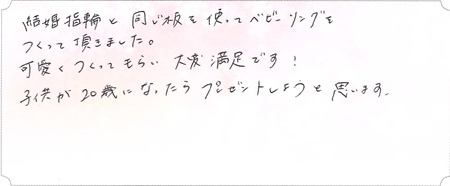 結婚指輪と同じ板を使ってベビーリングを
つくって頂きました。
可愛くつくってもらい大変満足です!
子供が20歳になったらプレゼントしようと思います。